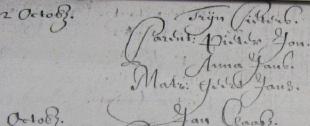 2 Octobr. Trijn Pieters.
Parent: Pieter Jan.
Anna Jans.
Matr: Geert Jans.
Octobr. Jan Claasz.